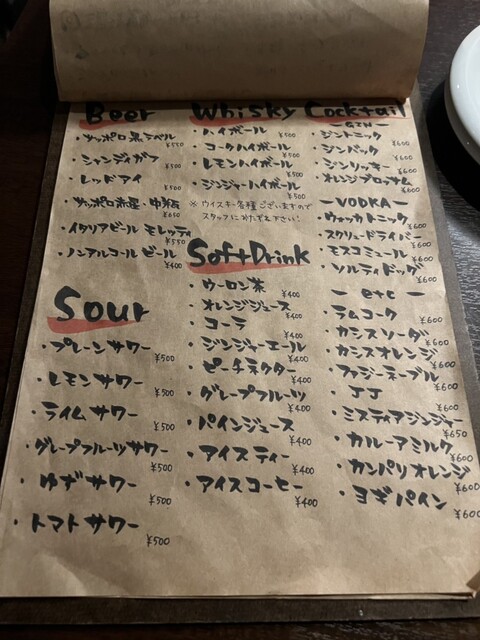 Beer
・サッポロ黒ラベル
¥550
・シャンディガフ
・レッドアイ
・サッポロ赤星 中瓶
¥650
・イタリアビール モレッティ
¥550
・ノンアルコールビール
¥400
Sour
・プレーンサワー
¥500
・レモンサワー
¥500
・ライムサワー
¥500
・グレープフルーツサワー
¥500
・ゆずサワー
¥500
・トマトサワー
¥500
Whisky
・ハイボール
¥500
・コークハイボール
¥500
・レモンハイボール
¥500
・ジンジャーハイボール
¥500
※ウイスキー各種ございますので
スタッフにおたずね下さい!
Soft Drink
・ウーロン茶
¥400
・オレンジジュース
¥400
・コーラ
¥400
・ジンジャーエール
¥400
・ピーチネクター
¥400
・グレープフルーツ
¥400
・パインジュース
¥400
・アイスティー
¥400
・アイスコーヒー
¥400
Cocktail
－GIN－
・ジントニック
¥600
・ジンバック
¥600
・ジンリッキー
¥600
・オレンジブロッサム
¥600
－VODKA－
・ウォッカトニック
¥600
・スクリュードライバー
¥600
・モスコミュール
¥600
・ソルティドッグ
¥600
－etc－
・ラムコーク
¥600
・カシスソーダ
¥600
・カシスオレンジ
¥600
・ファジーネーブル
¥600
・JJ
¥600
・ミスティアジンジャー
¥650
・カルーアミルク
¥600
・カンパリオレンジ
¥600
・ヨギパイン
¥600